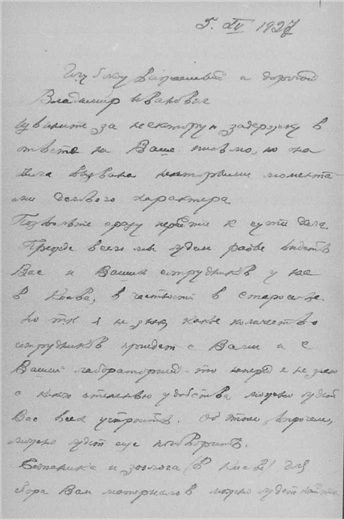 5. IV 1927
Глубокоуважаемый и дорогой
Владимир Иванович
Извините за некоторую задержку в
ответе на Ваше письмо, но она
была вызвана некоторыми момента-
ми делового характера
Позвольте сразу перейти к сути дела
Прежде всего мы будем рады видеть
Вас и Ваших сотрудников у нас
в Киеве, в частности в Старосе
но т.к. я не знаю какое количество
сотрудников приедет с Вами и с
Вашей лабораторией - то наперед не знаю
с какой степенью удобства можно будет
Вас всех устроить. Об этом, впрочем,
можно будет еще поговорить.
Ботаника и зоолога (в Киеве) для
сбора Вам материалов можно будет найти